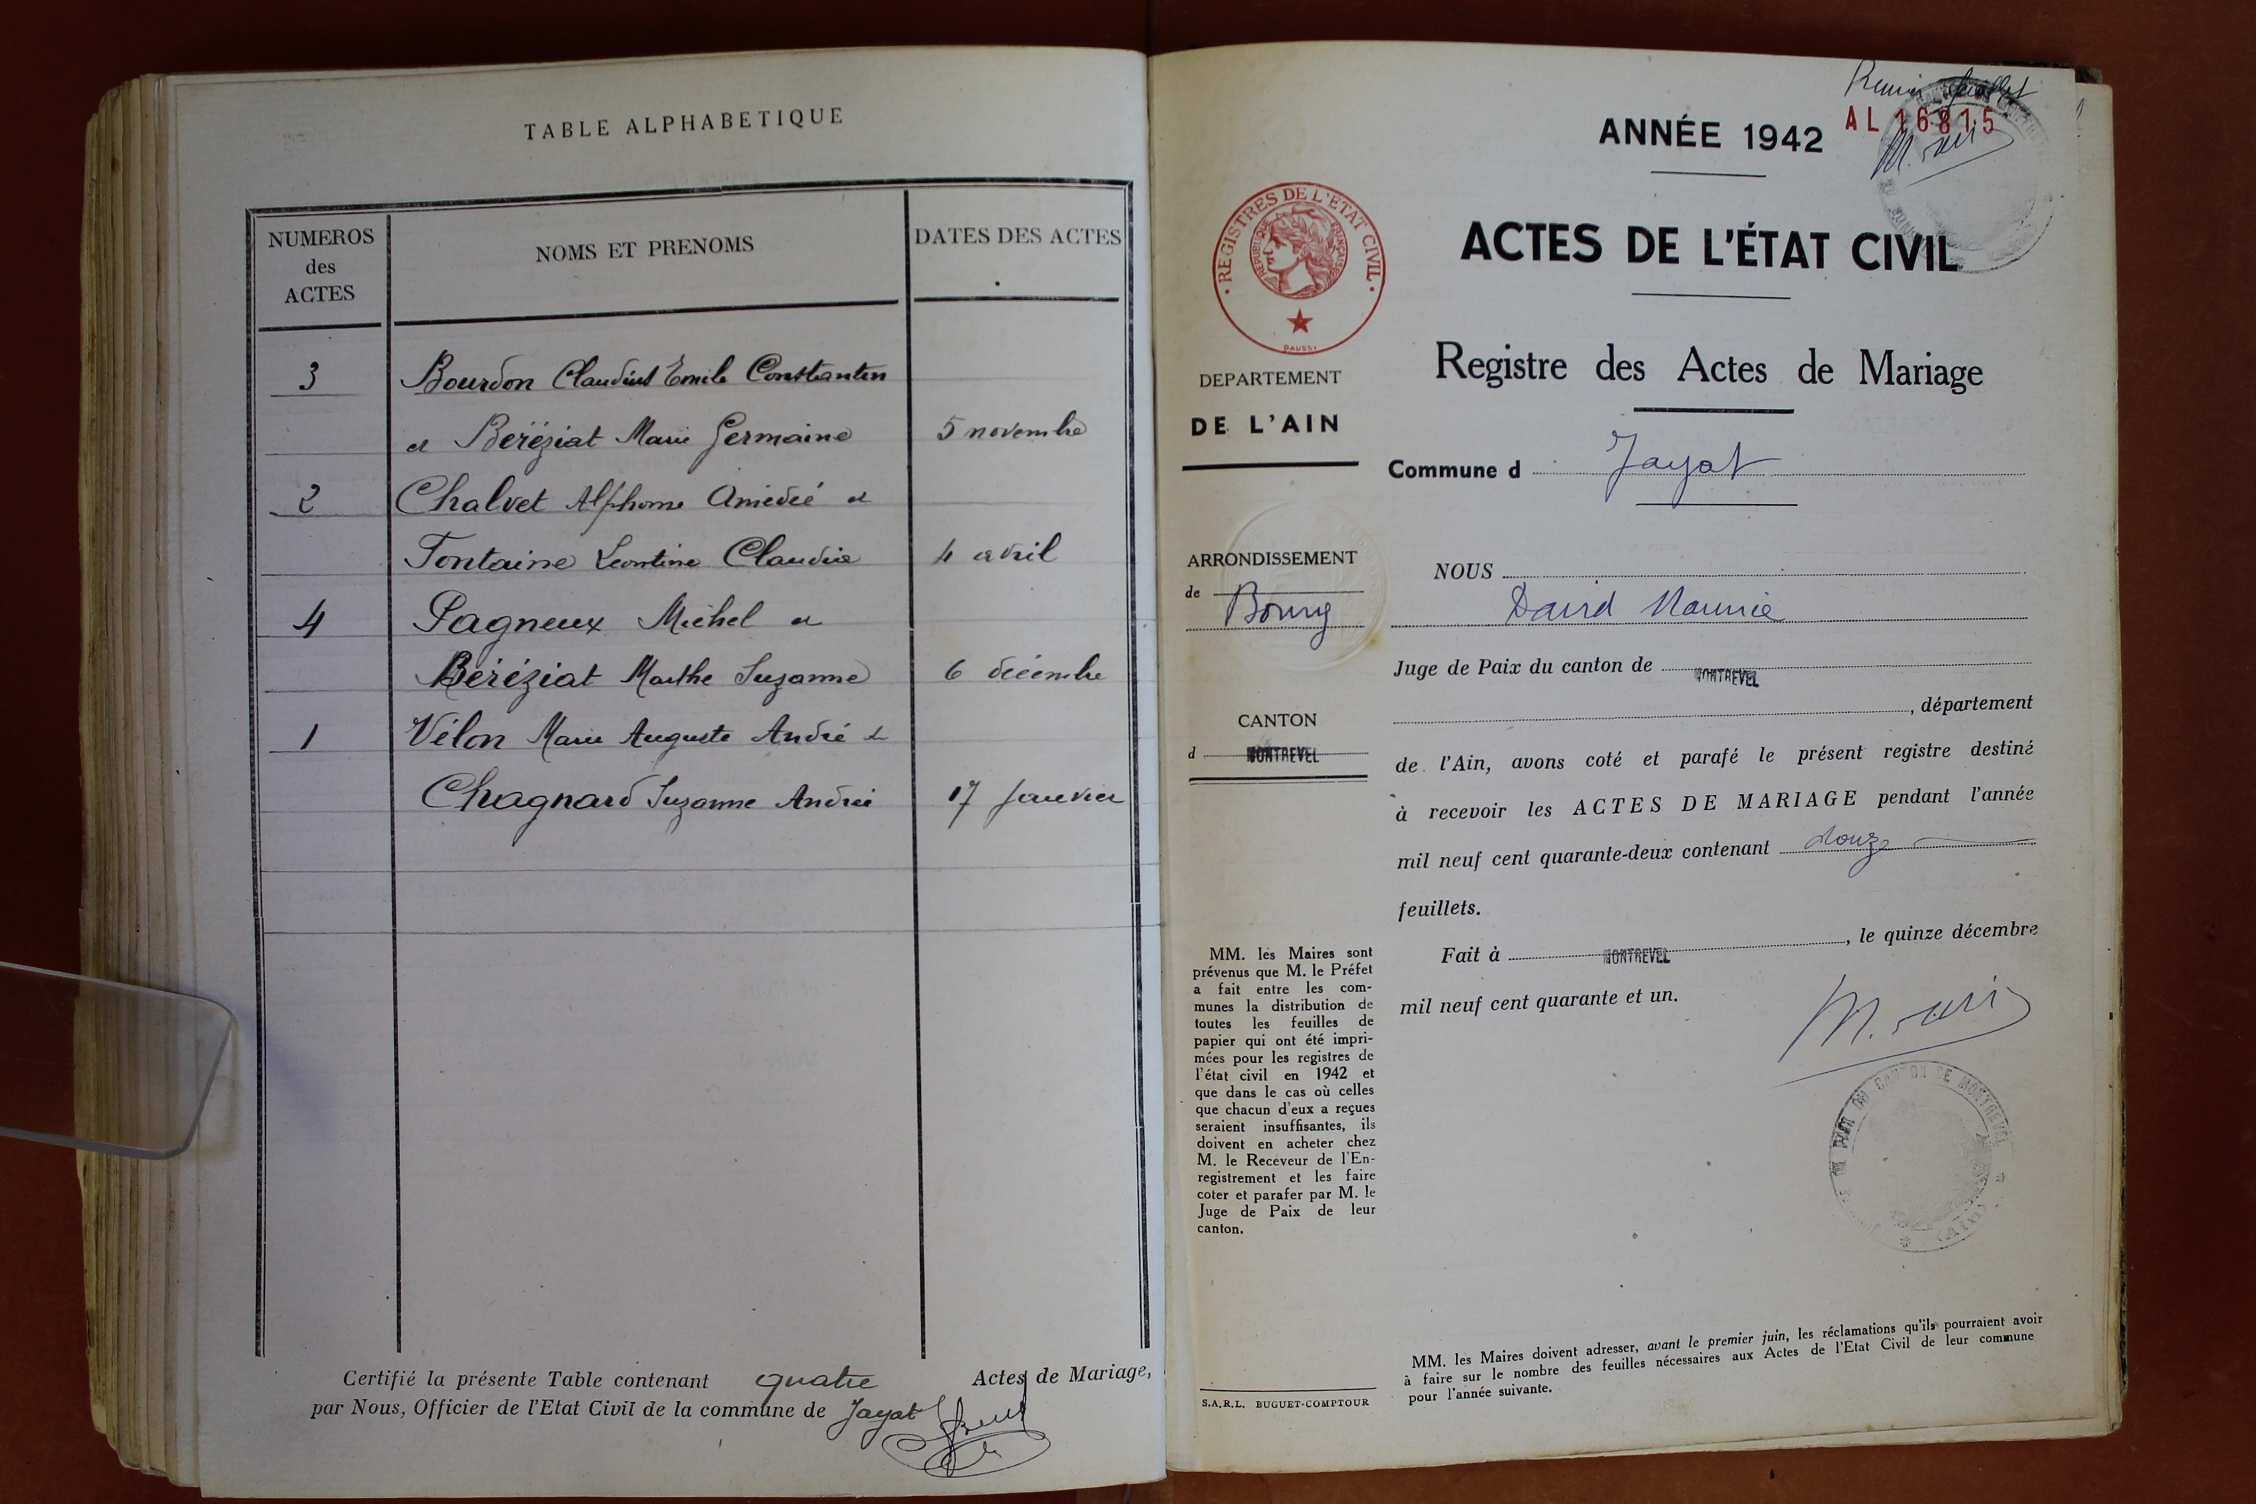 TABLE ALPHABETIQUE
NUMEROS
des
ACTES
NOMS ET PRENOMS
DATES DES ACTES
3 Bourdon Claudius Emile Constantin
et Béréziat Marie Germaine 5 novembre
2 Chalvet Alphonse Amédée et
Fontaine Léontine Claudia 4 avril
4 Pagneux Michel et
Béréziat Marthe Suzanne 6 décembre
1 Vélon Marie Auguste André et
Chagnard Suzanne Andrée 17 Janvier
Certifié la présente Table contenant quatre Actes de Mariage,
par Nous, Officier de l'Etat Civil de la commune de Jayat
Premier feuillet
AL 16815
ANNÉE 1942
ACTES DE L'ÉTAT CIVIL
REGISTRES DE L'ETAT CIVIL
REPUBLIQUE FRANÇAISE
DAUSSY
Registre des Actes de Mariage
DEPARTEMENT
DE L'AIN
Commune d Jayat
ARRONDISSEMENT
de Bourg
CANTON
d MONTREVEL
NOUS
David Maurice
Juge de Paix du canton de MONTREVEL
, département
de l'Ain, avons coté et parafé le présent registre destiné
à recevoir les ACTES DE MARIAGE pendant l'année
mil neuf cent quarante-deux contenant douze
feuillets.
Fait à MONTREVEL, le quinze décembre
mil neuf cent quarante et un.
MM. les Maires sont
prévenus que M. le Préfet
a fait entre les com-
munes la distribution de
toutes les feuilles de
papier qui ont été impri-
mées pour les registres de
l'état civil en 1942 et
que dans le cas où celles
que chacun d'eux a reçues
seraient insuffisantes, ils
doivent en acheter chez
M. le Receveur de l'En-
registrement et les faire
coter et parafer par M. le
Juge de Paix de leur
canton.
DU CANTON DE MONTREVEL
(AIN)
S.A.R.L. BUGUET-COMPTOUR
MM. les Maires doivent adresser, avant le premier juin, les réclamations qu'ils pourraient avoir
à faire sur le nombre des feuilles nécessaires aux Actes de l'Etat Civil de leur commune
pour l'année suivante.